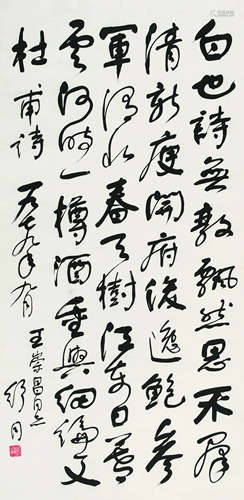 白也詩無敵飄然思不羣
清新庾開府俊逸鮑參
軍渭北春天樹江東日暮
雲何時一樽酒重與細論文
杜甫詩 一九七九年九月
王崇昌同志
舒同